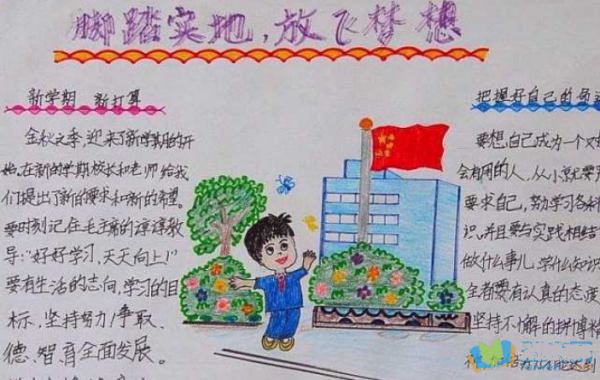 脚踏实地,放飞梦想
新学期 新打算
金秋之季,迎来了新学期的开
始,在新的学期校长和老师给我
们提出了新的要求和新的希望。
要时刻记在毛主席的谆谆教
导:“好好学习,天天向上!”
要有生活的志向,学习的目
标,坚持努力!争取、
德、智、育全面发展。
把握好自己的
要想自己成为一个对
会有用的人,从小就要
要求自己,努力学习各
识,并且要与实践相结
做什么事儿,学什么知识
全都要有认真的态度
坚持不懈的拼博